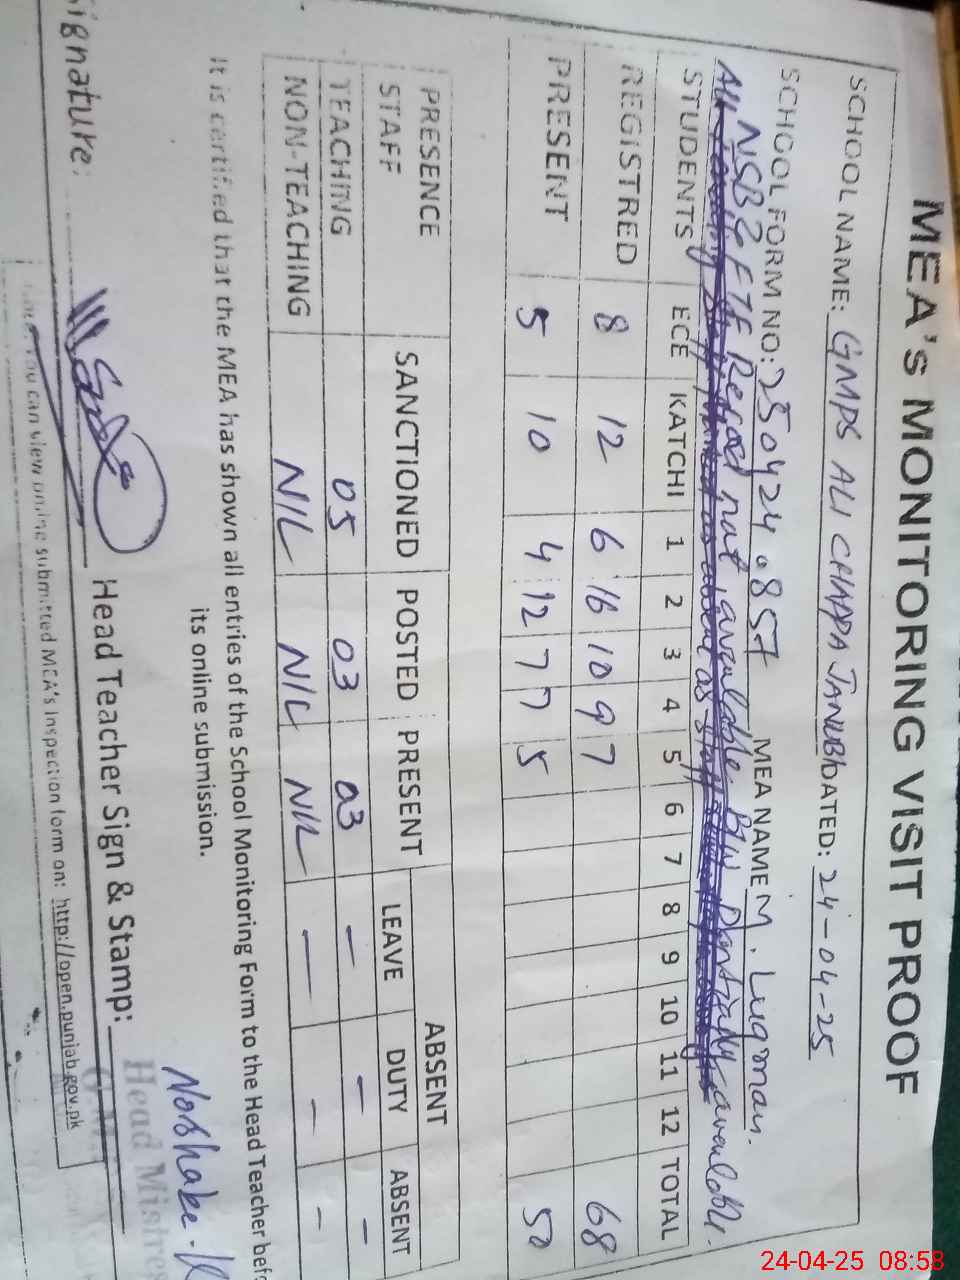 MEA's MONITORING VISIT PROOF
SCHOOL NAME: GMPS ALI CHAPPA JANUBI DATED: 24-04-25
SCHOOL FORM NO: 250424.0857 MEA NAME M. Luqman.
NSB, & FTF Record not available BIW Partially available.
STUDENTS ECE KATCHI 1 2 3 4 5 6 7 8 9 10 11 12 TOTAL
REGISTRED 8 12 6 16 10 9 7 68
PRESENT 5 10 4 12 7 7 5 50
PRESENCE STAFF SANCTIONED POSTED PRESENT ABSENT
LEAVE DUTY ABSENT
TEACHING 05 03 03 — — —
NON-TEACHING NIL NIL NIL — — —
It is certified that the MEA has shown all entries of the School Monitoring Form to the Head Teacher before
its online submission.
Signature: Head Teacher Sign & Stamp:
Head Mistres
you can view online submitted MEA's inspection form on: http://open.punjab.gov.pk
24-04-25 08:58